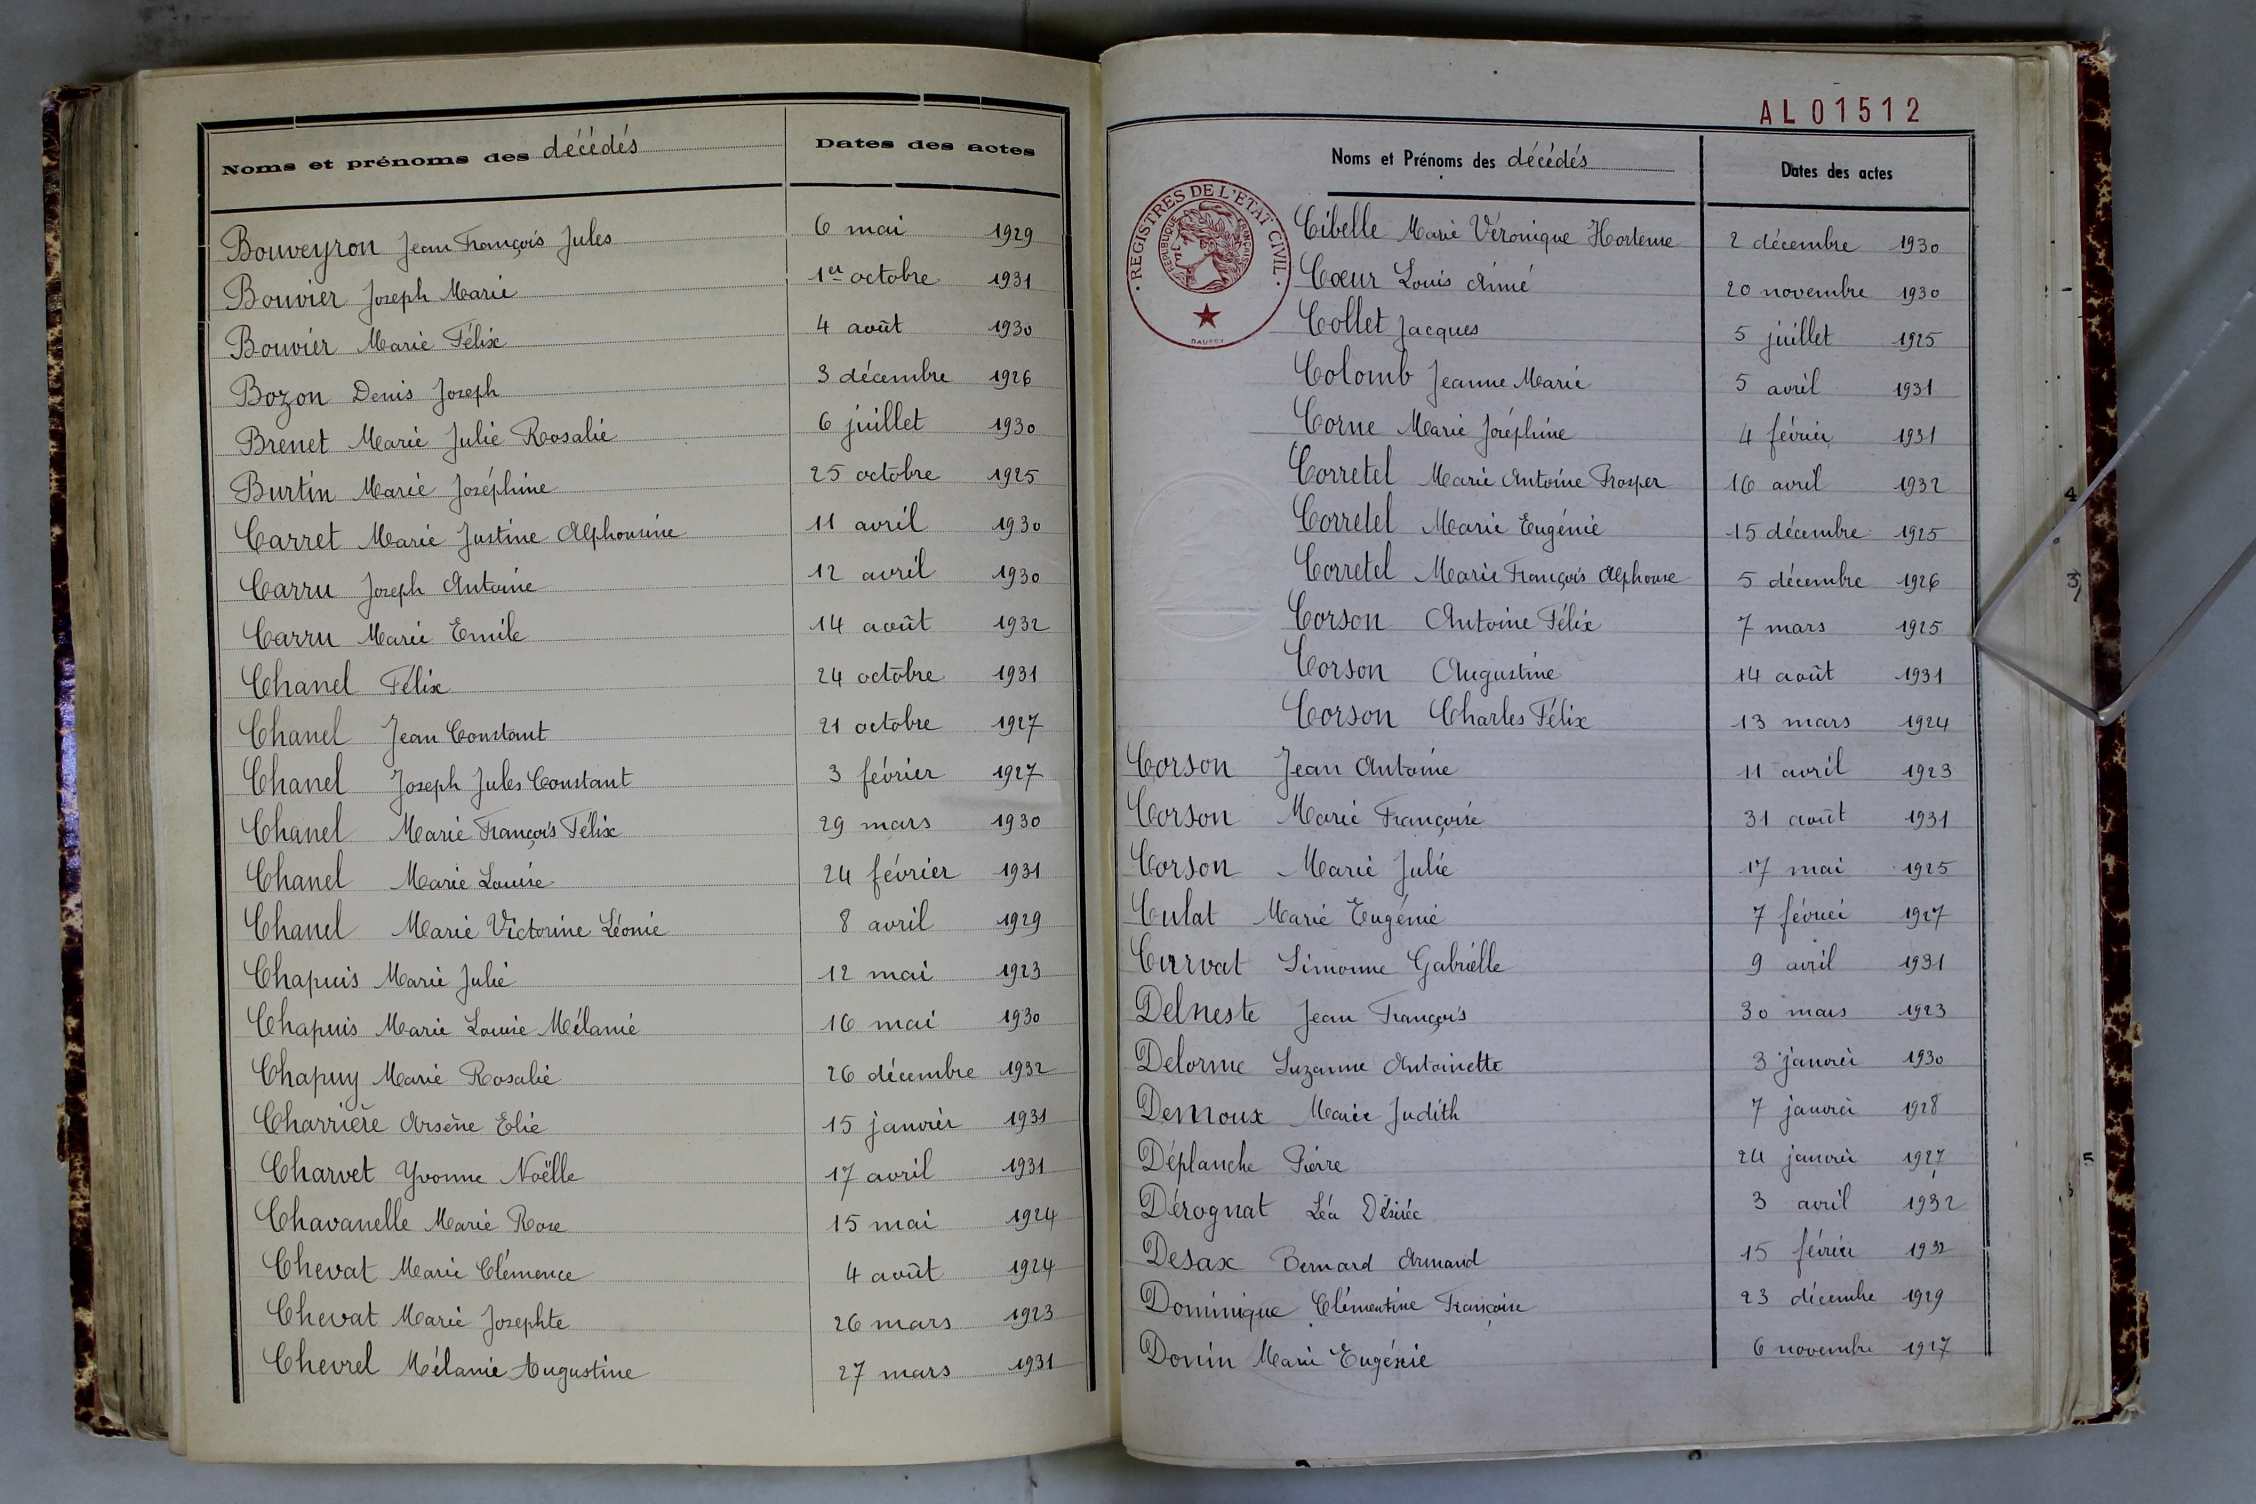 Noms et prénoms des décédés Dates des actes
Bouveyron Jean François Jules 6 mai 1929
Bouvier Joseph Marie 1er octobre 1931
Bouvier Marie Félix 4 août 1930
Bozon Denis Joseph 3 décembre 1926
Brenet Marie Julie Rosalie 6 juillet 1930
Burtin Marie Joséphine 25 octobre 1925
Carret Marie Justine Alphonsine 11 avril 1930
Carru Joseph Antoine 12 avril 1930
Carru Marie Emile 14 août 1932
Chanel Félix 24 octobre 1931
Chanel Jean Constant 21 octobre 1927
Chanel Joseph Jules Constant 3 février 1927
Chanel Marie François Félix 29 mars 1930
Chanel Marie Louise 24 février 1931
Chanel Marie Victorine Léonie 8 avril 1929
Chapuis Marie Julie 12 mai 1923
Chapuis Marie Louise Mélanie 16 mai 1930
Chapuy Marie Rosalie 26 décembre 1932
Charrière Arsène Elie 15 janvier 1931
Charvet Yvonne Noëlle 17 avril 1931
Chavanelle Marie Rose 15 mai 1924
Chevat Marie Clémence 4 août 1924
Chevat Marie Josephte 26 mars 1923
Chevrel Mélanie Augustine 27 mars 1931
AL01512
Noms et Prénoms des décédés Dates des actes
REGISTRES DE L'ETAT CIVIL
REPUBLIQUE FRANÇAISE
Cibelle Marie Véronique Hortense 2 décembre 1930
Cœur Louis Aimé 20 novembre 1930
Collet Jacques 5 juillet 1925
Colomb Jeanne Marie 5 avril 1931
Corne Marie Joséphine 4 février 1931
Corretel Marie Antoine Prosper 16 avril 1932
Corretel Marie Eugénie 15 décembre 1925
Corretel Marie François Alphonse 5 décembre 1926
Corson Antoine Félix 7 mars 1925
Corson Augustine 14 août 1931
Corson Charles Félix 13 mars 1924
Corson Jean Antoine 11 avril 1923
Corson Marie Françoise 31 août 1931
Corson Marie Julie 17 mai 1925
Culat Marie Eugénie 7 février 1927
Curvat Simonne Gabrielle 9 avril 1931
Delneste Jean François 30 mars 1923
Delorme Suzanne Antoinette 3 janvier 1930
Demoux Marie Judith 7 janvier 1928
Déplanche Pierre 24 janvier 1927
Dérognat Léa Désirée 3 avril 1932
Desax Bernard Armand 15 février 1932
Dominique Clémentine Françoise 23 décembre 1929
Donin Marie Eugénie 6 novembre 1927